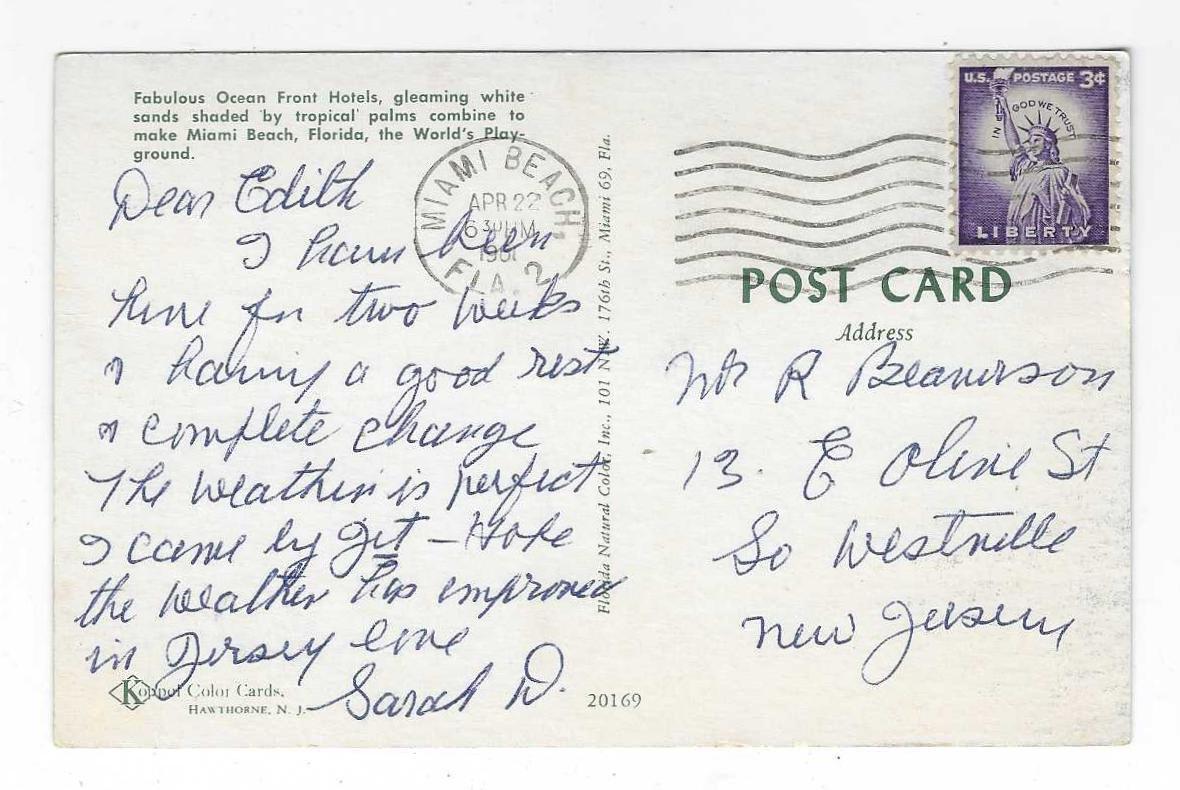 Fabulous Ocean Front Hotels, gleaming white
sands shaded by tropical palms combine to
make Miami Beach, Florida, the World's Play-
ground.
Dear Edith
I have been
here for two weeks
& having a good rest
& complete change
The weather is perfect
I came by jet - Hope
the weather has improved
in Jersey love
Sarah D.
Koppel Color Cards.
HAWTHORNE, N. J.
20169
MIAMI BEACH,
APR 22
630 PM
1961
FLA. 2
Florida Natural Color, Inc., 101 N.W. 176th St., Miami 69, Fla.
U.S. POSTAGE 3¢
IN GOD WE TRUST
LIBERTY
POST CARD
Address
R
13. E Olive St
So Westville
New Jersey